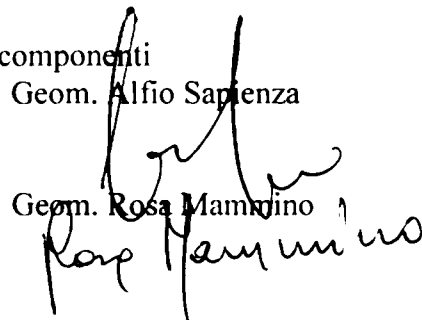 componenti
Geom. Alfio Sapienza
Geom. Rosa Mammino
Rosa Mammino